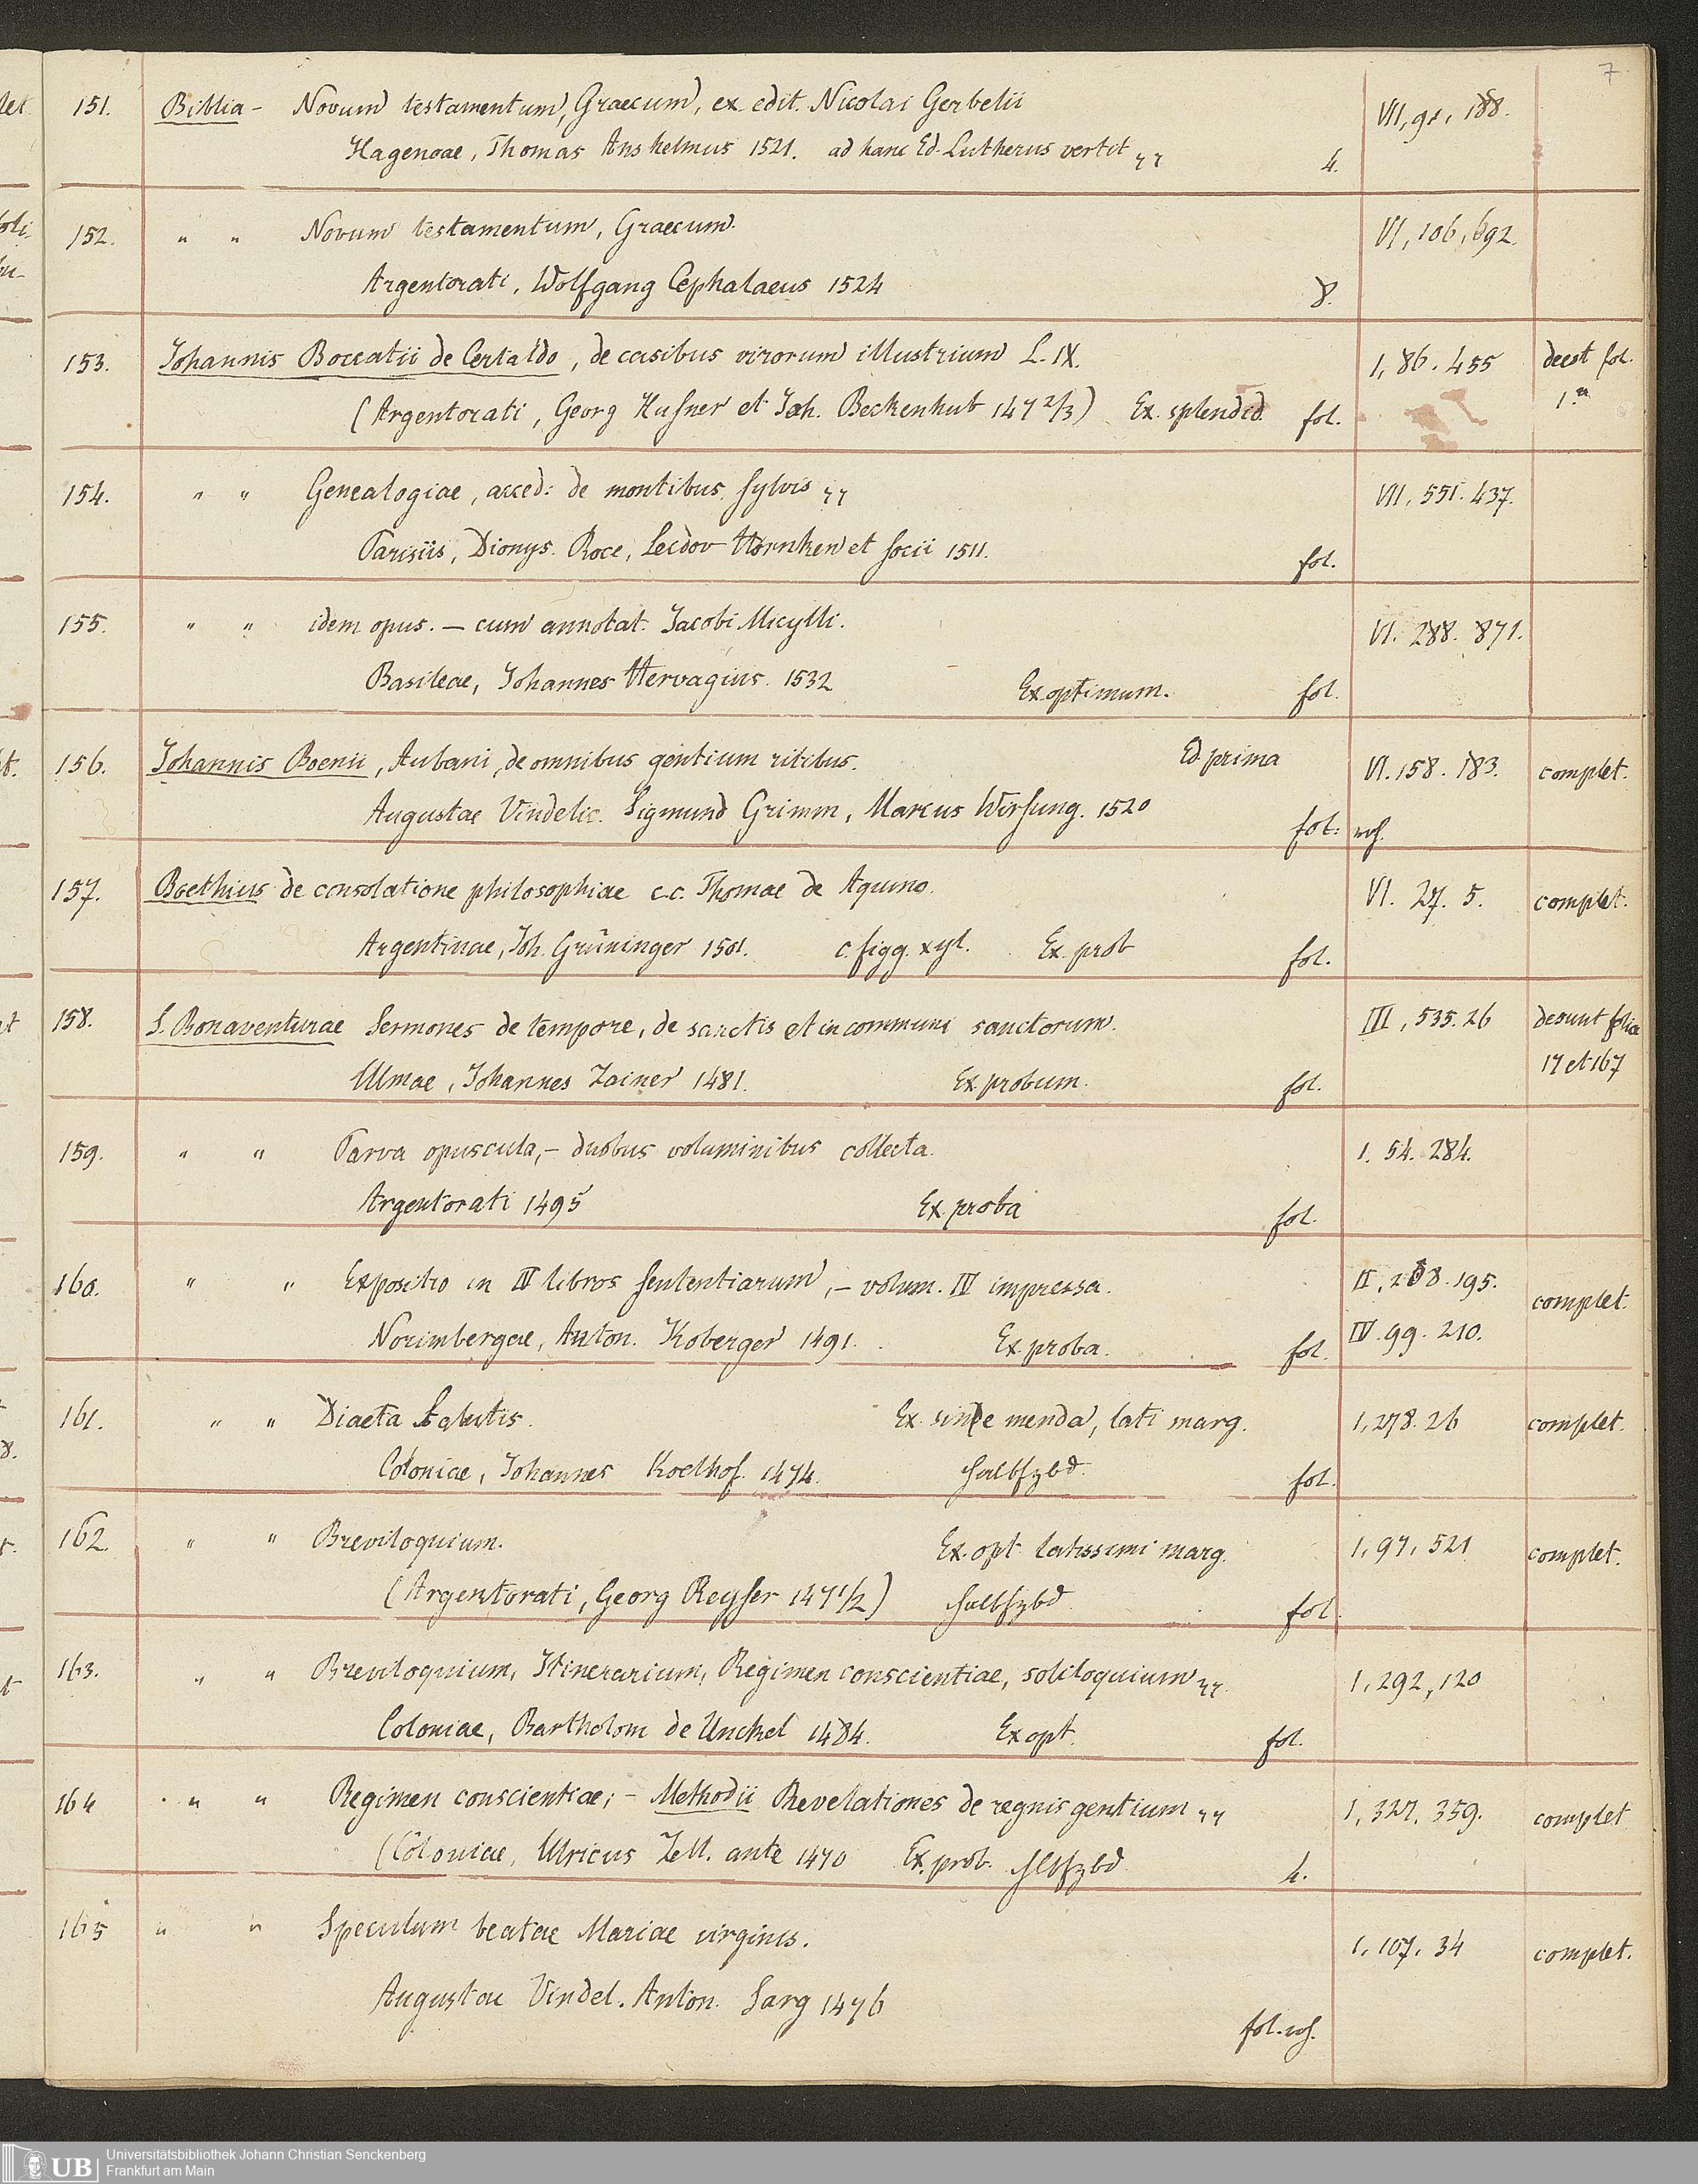 7.
151. Biblia - Novum testamentum, Graecum, ex edit. Nicolai Gerbelii VII, 91, 188.
Hagenoae, Thomas Anshelmus 1521. ad hanc Ed. Lutherus vertit 4.
152. " " Novum testamentum, Graecum. VI, 106, 692.
Argentorati, Wolfgang Cephalaeus 1524 8.
153. Johannis Boccatii de Certaldo, de casibus virorum illustrium L. IX. I, 86. 455 deest fol.
(Argentorati, Georg Husner et Joh. Beckenhub 147 2/3) Ex. splendid. fol. 1.
154. " " Genealogiae, acced: de montibus, sylvis VII, 551. 437.
Parisiis, Dionys. Roce, Ledov Hornken et socii 1511. fol.
155. " " idem opus. — cum annotat. Jacobi Micylli. VI. 288. 871.
Basileae, Johannes Hervagius. 1532 Ex optimum. fol.
156. Johannis Boemi, Aubani, de omnibus gentium ritibus. Ed. prima VI. 158. 183. complet.
Augustae Vindelic. Sigmund Grimm, Marcus Wirsung. 1520 fol:
157. Boethius de consolatione philosophiae c.c. Thomae de Aquino. VI. 27. 5. complet.
Argentinae, Joh. Grüninger 1501. c. figg. xyl. Ex. prob fol.
158. S. Bonaventurae Sermones de tempore, de sanctis et in communi sanctorum. III, 535. 26 desunt folia
Ulmae, Johannes Zainer 1481. Ex. probum. fol. 17 et 167
159. " " Parva opuscula, - duobus voluminibus collecta. I. 54. 284.
Argentorati 1495 Ex. proba fol.
160. " " Expositio in IV libros sententiarum, - volum. IV impressa. II, 258. 195. complet.
Norimbergae, Anton. Koberger 1491. Ex. proba. fol. IV. 99. 210.
161. " " Diaeta Salutis. Ex. sine menda, lati marg. I, 278. 26 complet.
Coloniae, Johannes Koelhof. 1474. Halbfzbd. fol.
162. " " Breviloquium. Ex. opt latissimi marg. I, 97, 521 complet.
(Argentorati, Georg Reyser 147 1/2) Halbfzbd fol
163. " " Breviloquium, Itinerarium, Regimen conscientiae, soliloquium I, 292, 120
Coloniae, Bartholom de Unckel 1484. Ex opt. fol.
164 " " Regimen conscientiae; - Methodii Revelationes de regnis gentium I, 327. 359. complet
(Coloniae, Ulricus Zell. ante 1470 Ex. prob. Hlbfzbd 4.
165 " " Speculum beatae Mariae virginis. I. 107. 34 complet.
Augustae Vindel. Anton. Sorg 1476 fol.
UB Universitätsbibliothek Johann Christian Senckenberg
Frankfurt am Main